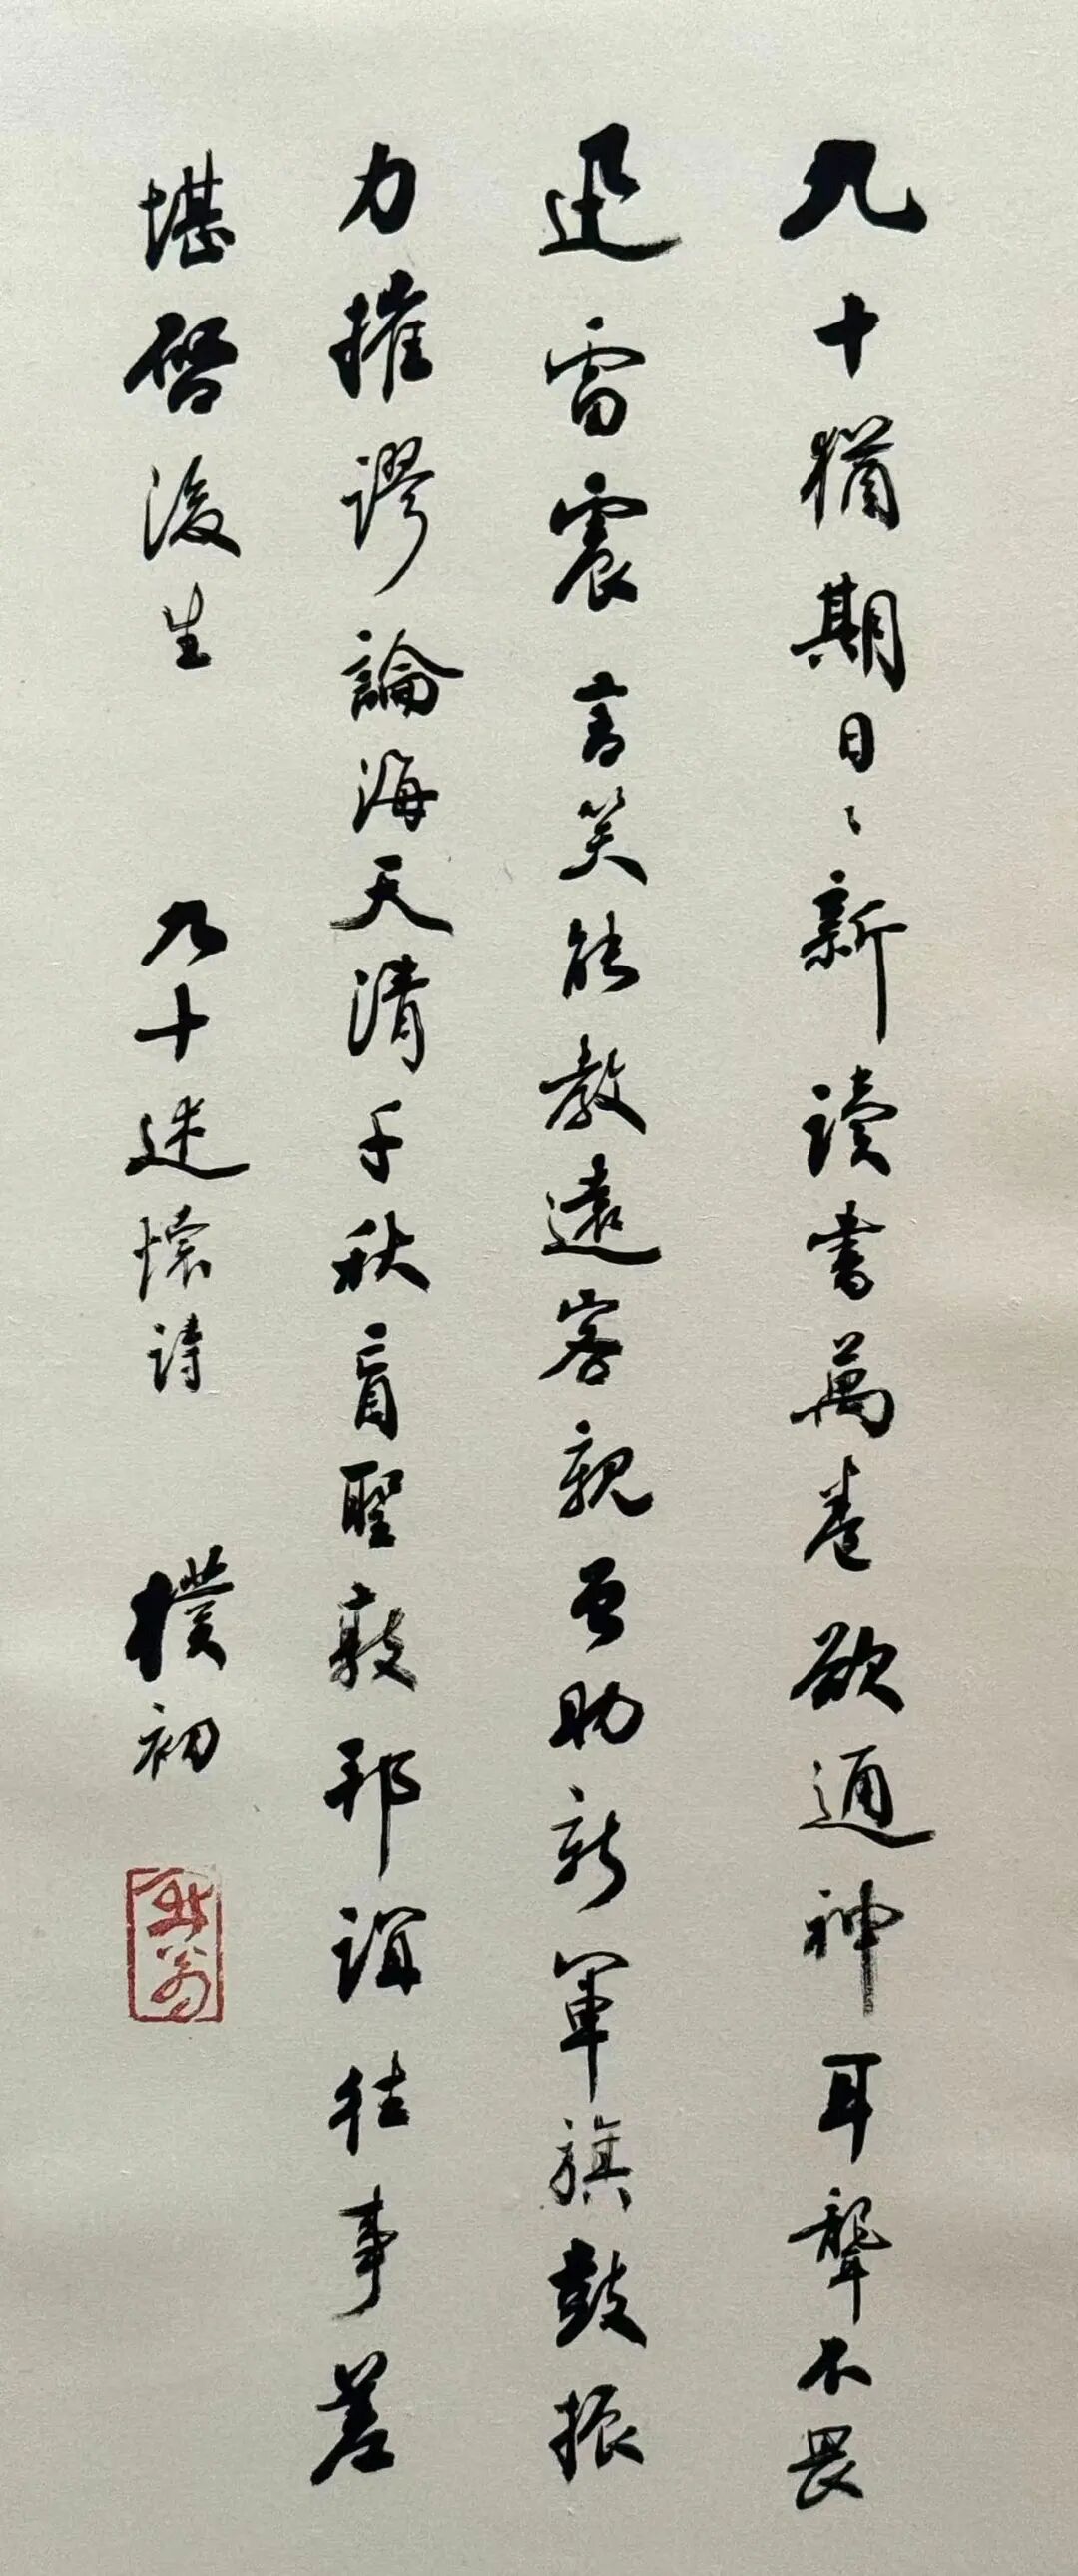 九十猶期日〻新讀書萬卷欲通神耳聾不畏
迅雷震言笑能教遠客親曾助新軍旗鼓振
力摧謬論海天清千秋盲聖敦邦誼往事差
堪啓後生　九十述懷詩　樸初